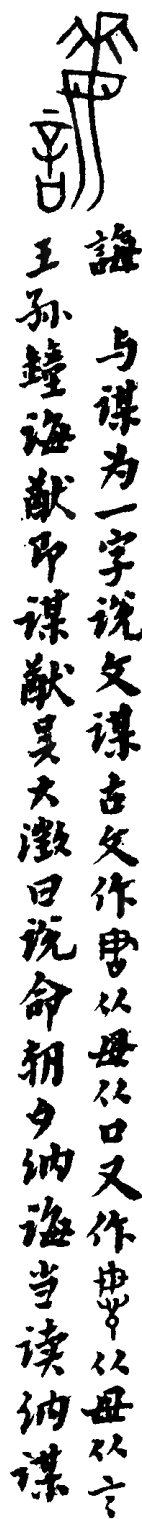 誨 与谋为一字说文谋古文作从母从口又作从母从言
王孙鐘诲猷即谋猷吴大澂曰说命朝夕纳诲当读纳谋